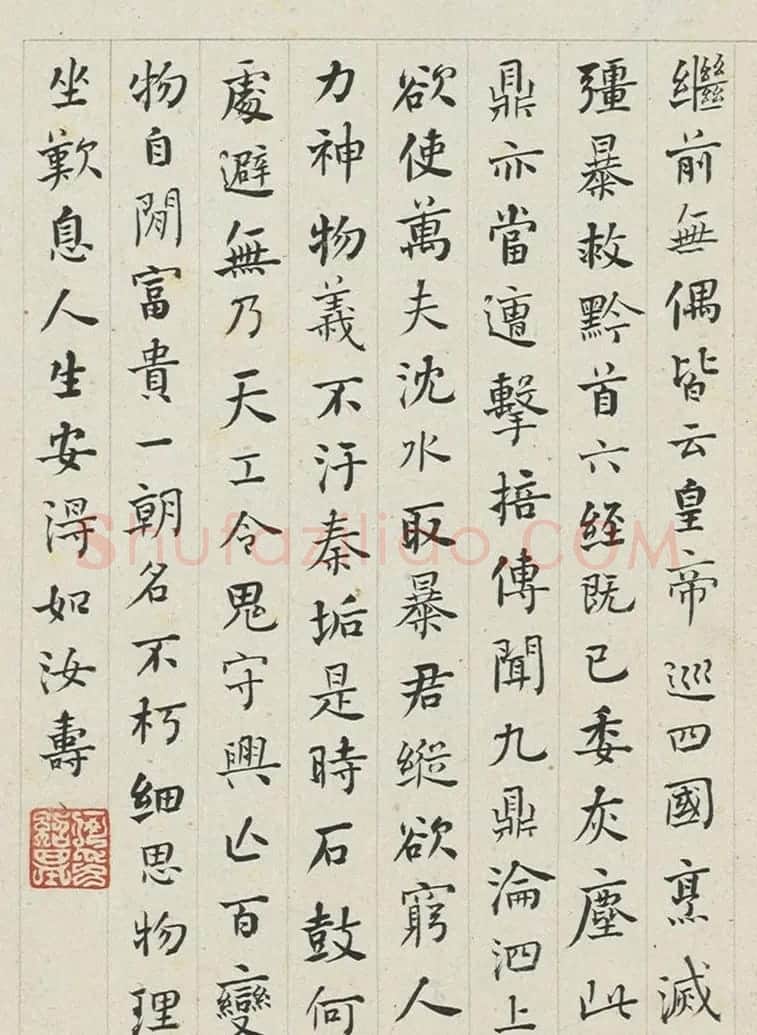 繼前無偶皆云皇帝巡四國烹滅
彊暴救黔首六經既已委灰塵此
鼎亦當遭擊掊傳聞九鼎淪泗上
欲使萬夫沈水取暴君縱欲窮人
力神物義不汙秦垢是時石鼓何
處避無乃天工令鬼守興亡百變
物自閒富貴一朝名不朽細思物理
坐歎息人生安得如汝壽
Shufaziliao.COM